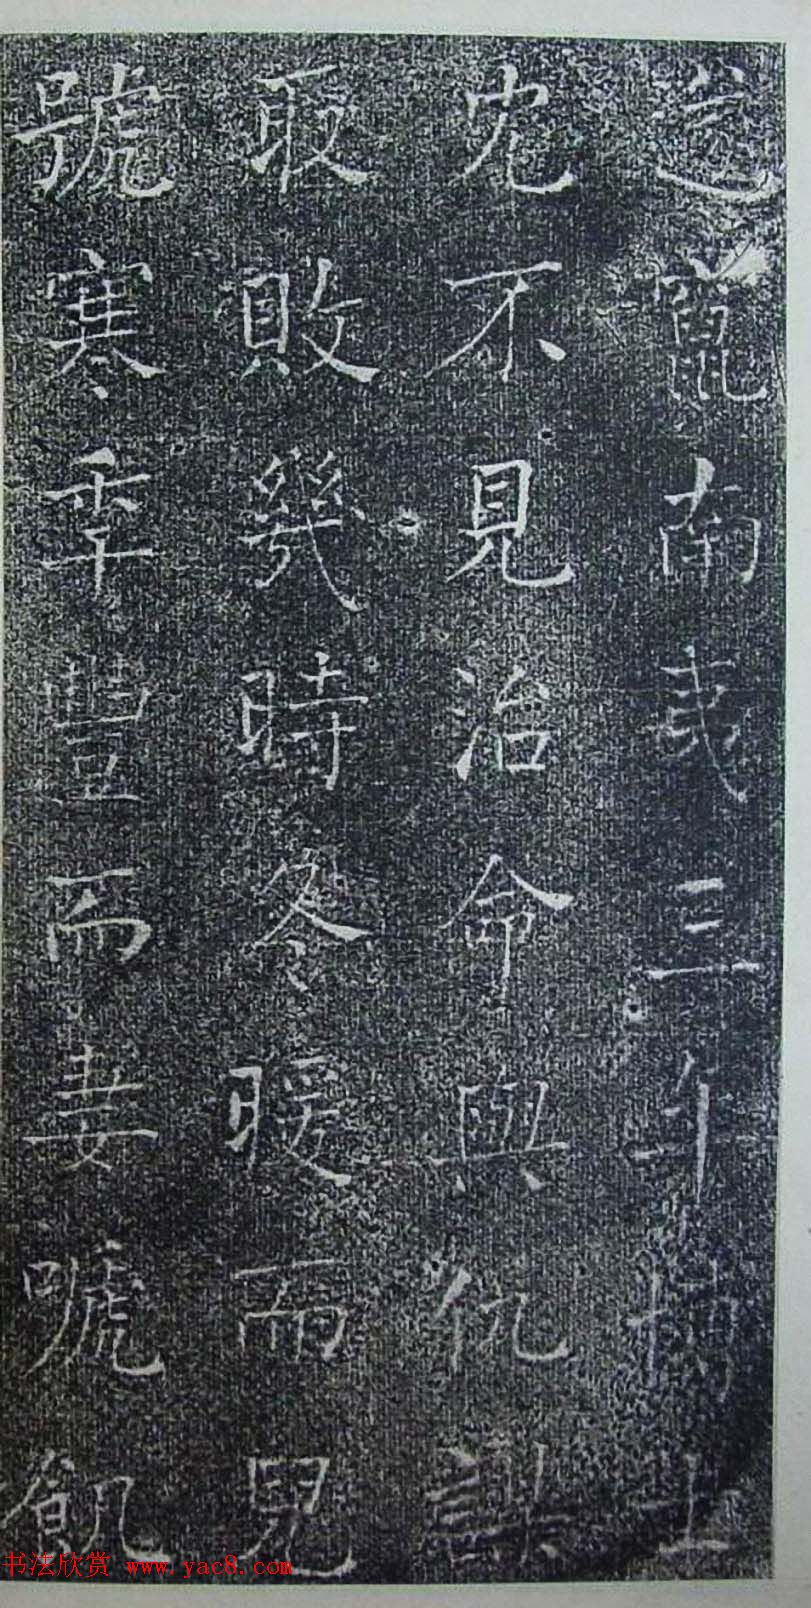 遂竄南夷三年博士
宂不見治命與仇謀
取敗幾時冬暖而兒
號寒秊豐而妻嗁飢
书法欣赏 www.yac8.com